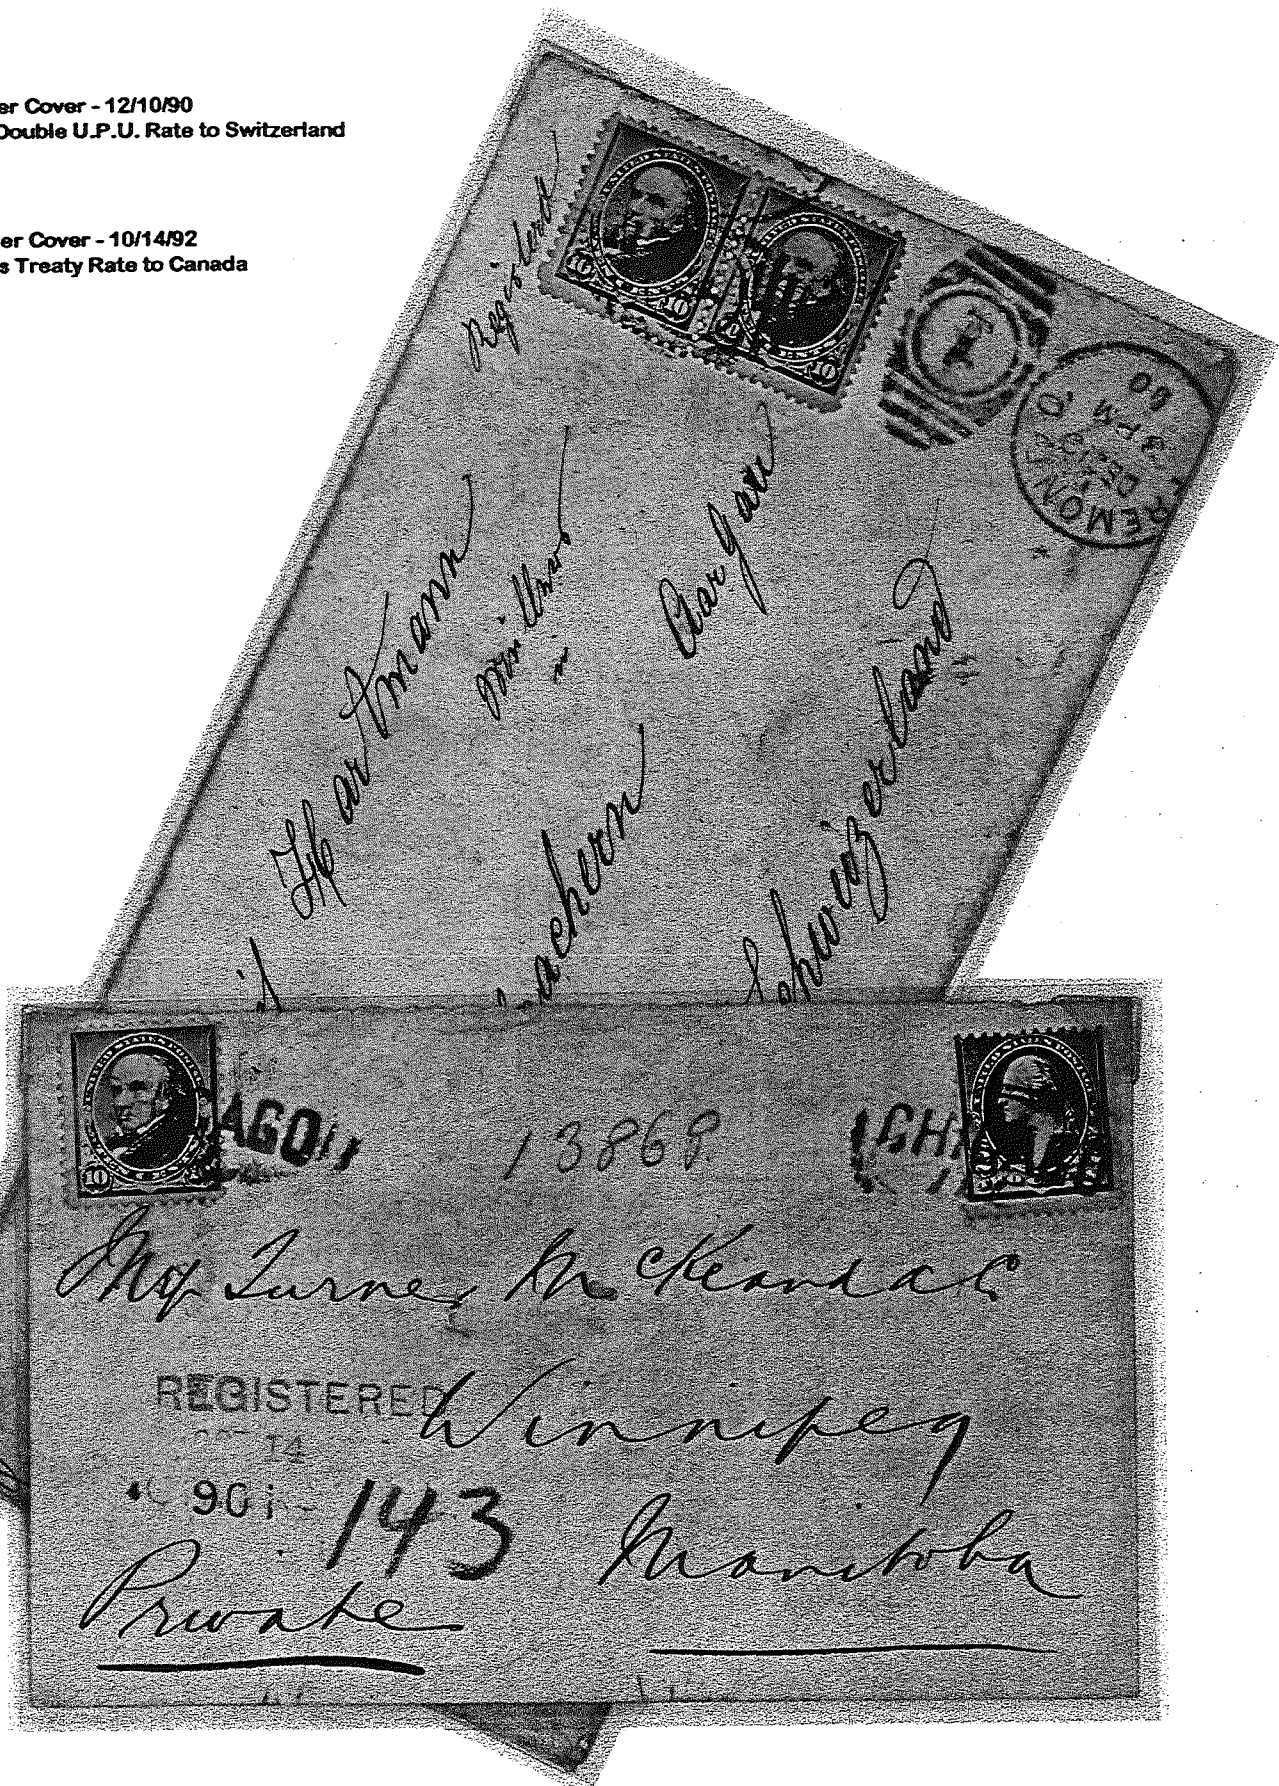 er Cover - 12/10/90
Double U.P.U. Rate to Switzerland
er Cover - 10/14/92
s Treaty Rate to Canada
Registered
10 10
10 10
1
REMONT O.
DEC
3 PM
90
Hartmann
in
achern
Aargau
Schweizerland
10
AGO
13868
CH
Turner McKeand & Co
REGISTERED
Winnipeg
14
90
143
Manitoba
Private